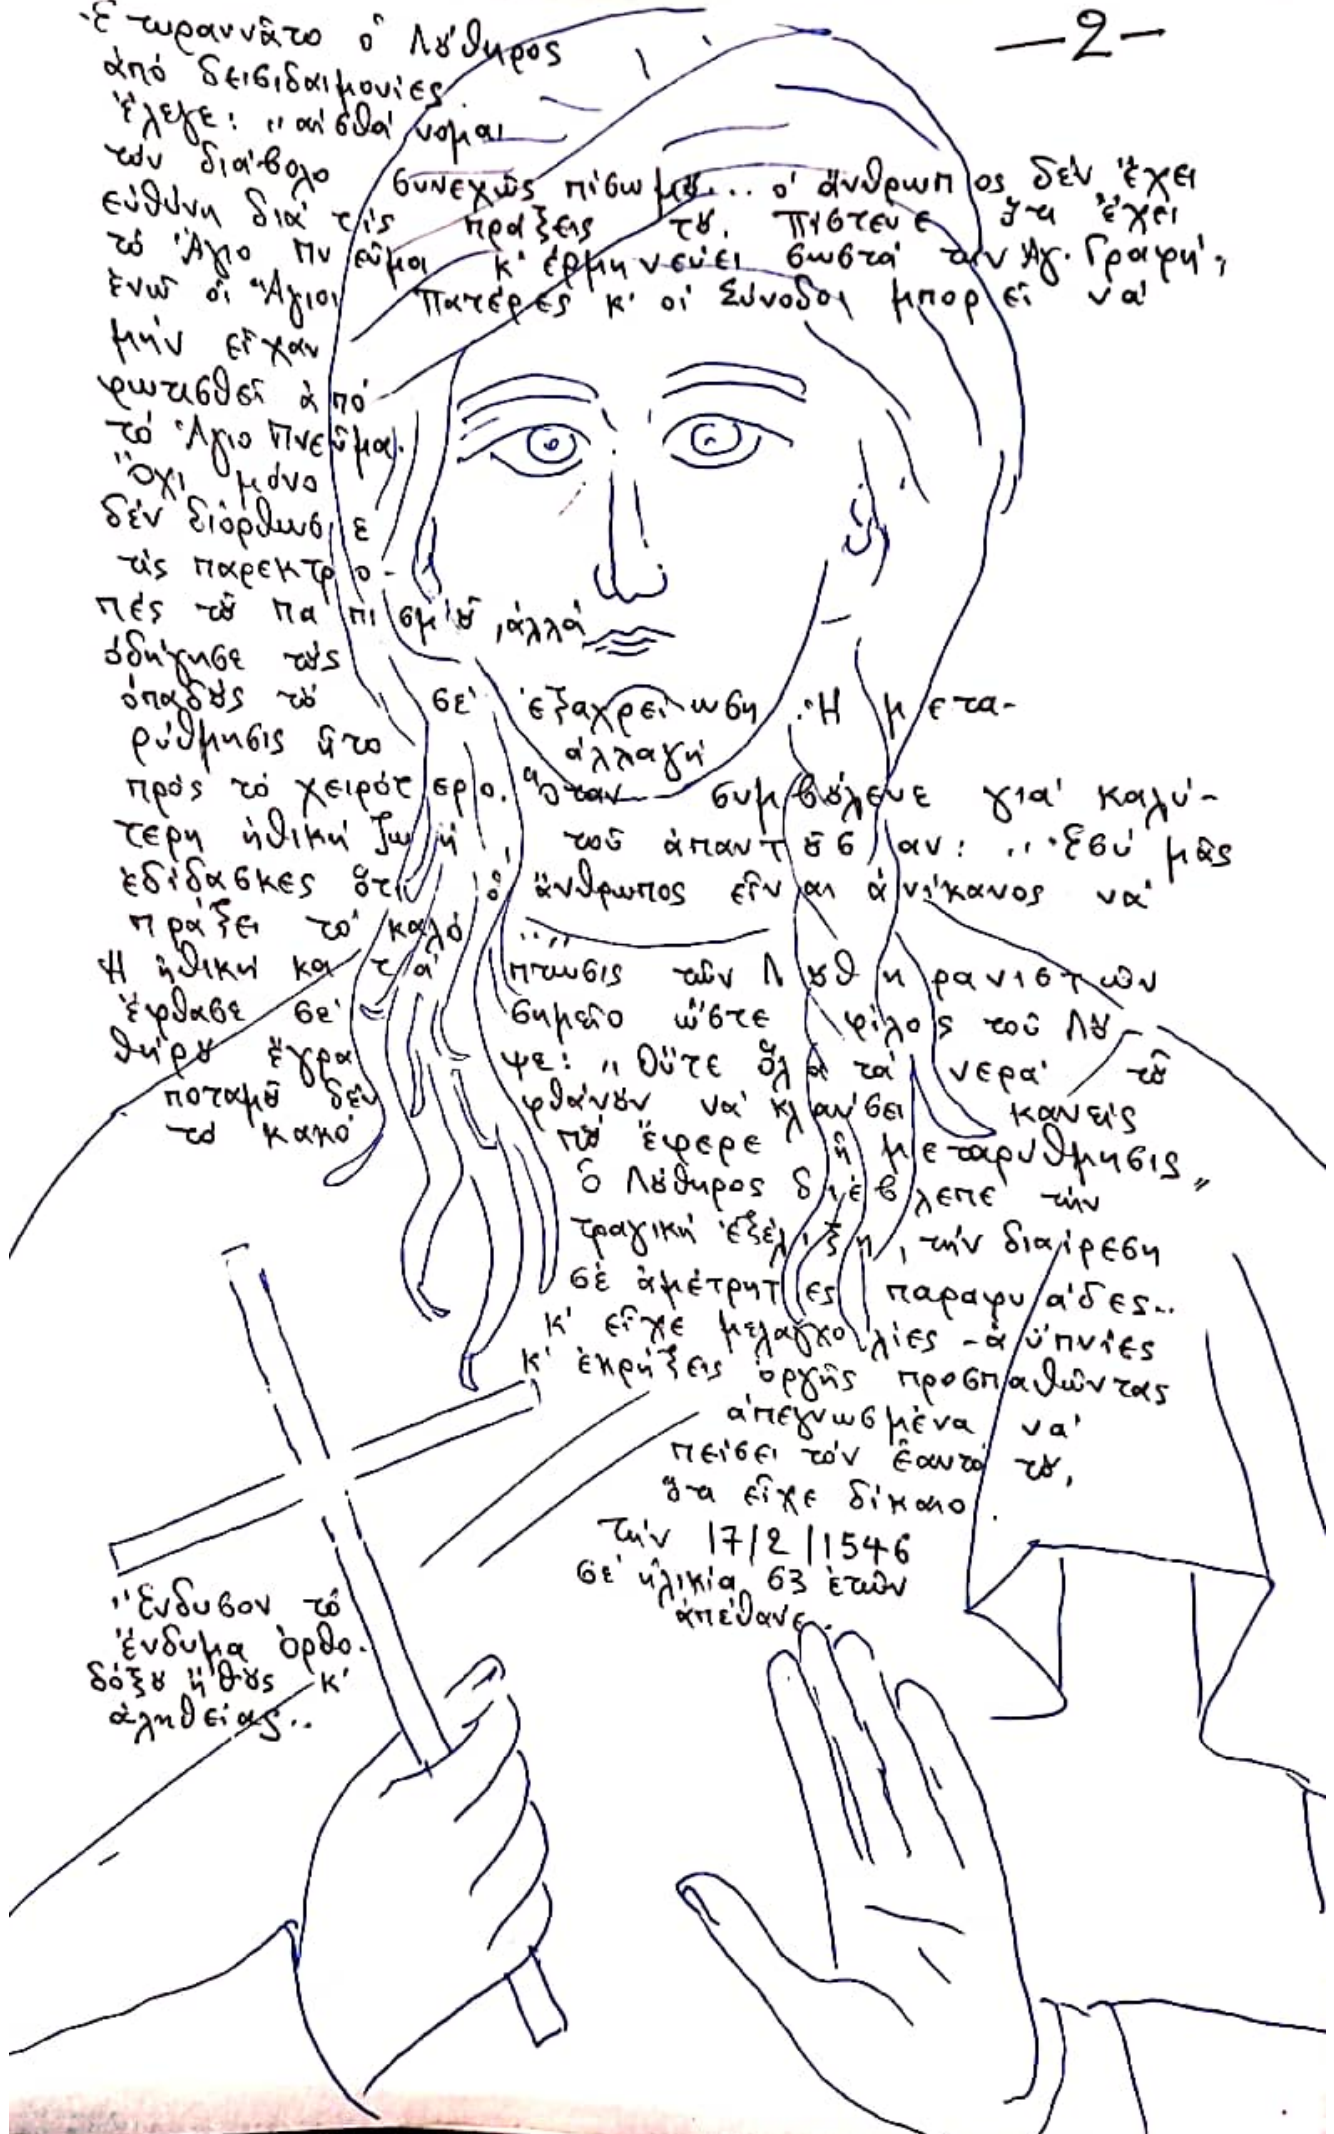 —2—
Ἐτυραννᾶτο ὁ Λȣ́θηρος
ἀπό δεισιδαιμονίες.
Ἔλεγε: „αἰσθάνομαι
τόν διάβολο συνεχῶς πίσω μȣ... ὁ ἄνθρωπος δέν ἔχει
εὐθύνη διά τίς πράξεις τȣ. Πίστευε ὅτι ἔχει
τό Ἅγιο Πνεῦμα κ' ἑρμηνεύει σωστά τήν Ἁγ. Γραφή,
ἐνῶ οἱ Ἅγιοι Πατέρες κ' οἱ Σύνοδοι μπορεῖ νά
μήν εἶχαν
φωτισθεῖ ἀπό
τό Ἅγιο Πνεῦμα.
Ὄχι μόνο
δέν διόρθωσε
τίς παρεκτρο-
πές τȣ͂ παπισμȣ͂, ἀλλά
ὁδήγησε τȣ́ς
ὀπαδȣ́ς τȣ σέ ἐξαχρείωση. Ἡ μετα-
ρύθμησις ἦτο ἀλλαγή
πρός τό χειρότερο. Ὅταν συμβȣ́λευε γιά καλύ-
τερη ἠθική ζωή, τοῦ ἀπαντȣ͂σαν: „Ἐσύ μᾶς
ἐδίδασκες ὅτι ὁ ἄνθρωπος εἶναι ἀνίκανος νά
πράξει τό καλό....„
Ἡ ἠθική κατάπτωσις τῶν Λȣθηρανιστῶν
ἔφθασε σέ σημεῖο ὥστε φίλος τοῦ Λȣ-
θήρȣ ἔγραψε: „Οὔτε ὅλα τά νερά τȣ͂
ποταμȣ͂ δέν φθάνȣν νά κλαύσει κανείς
τό κακό πȣ́ ἔφερε ἡ μεταρύθμησις„
Ὁ Λȣ́θηρος διέβλεπε τήν
τραγική ἐξέλιξη, τήν διαίρεση
σέ ἀμέτρητες παραφυάδες..
κ' εἶχε μελαγχολίες - ἀϋπνίες
κ' ἐκρήξεις ὀργῆς προσπαθῶντας
ἀπεγνωσμένα νά
πείσει τόν ἑαυτό τȣ,
ὅτι εἶχε δίκαιο.
Τήν 17/2/1546
σέ ἡλικία 63 ἐτῶν
ἀπέθανε..
„Ἔνδυσον τό
ἔνδυμα ὀρθο-
δόξȣ ἤθȣς κ'
ἀληθείας..